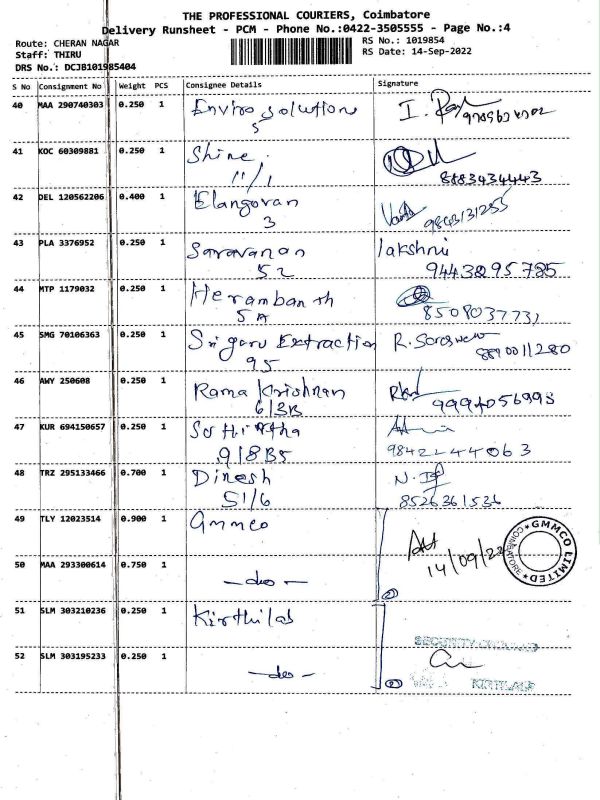 THE PROFESSIONAL COURIERS, Coimbatore
Delivery Runsheet - PCM - Phone No.:0422-3505555 - Page No.:4
Route: CHERAN NAGAR RS No.: 1019854
Staff: THIRU RS Date: 14-Sep-2022
DRS No.: DCJB101985404
S No Consignment No Weight PCS Consignee Details Signature
40 MAA 290740303 0.250 1 Enviro solutions
5
41 KOC 60309881 0.250 1 Shine
11/1 8883434443
42 DEL 120562206 0.400 1 Elangovan
3 9843131255
43 PLA 3376952 0.250 1 Saravanan lakshmi
52 9443295785
44 MTP 1179032 0.250 1 Herambanth
5A 8508037731
45 SMG 70106363 0.250 1 Sri guru Extraction
95 8870011280
46 AWY 250608 0.250 1 Rama Krishnan
6/3B
47 KUR 694150657 0.250 1
9/8B5 9842244063
48 TRZ 295133466 0.700 1 Dinesh
51/6 8526361536
49 TLY 12023514 0.900 1 Gmmco
14/09/22
GMMCO LIMITED
COIMBATORE
50 MAA 293300614 0.750 1
—do—
51 SLM 303210236 0.250 1 Kirthilal
SECURITY
52 SLM 303195233 0.250 1
—do—
KIRTILALS